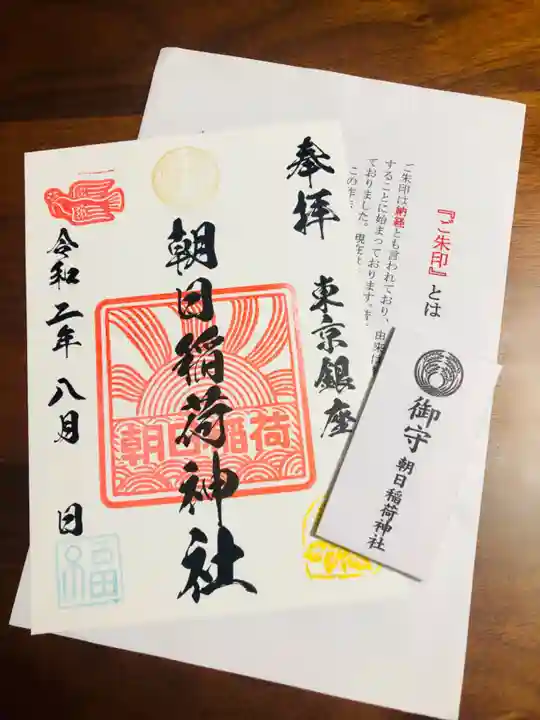 『ご朱印』とは
ご朱印は納経とも言われており、由来は
することに始まっております。昔
ておりました。現在は
この
奉拝
東京銀座
朝日稲荷神社
朝日稲荷
令和二年八月 日
福
御守
朝日稲荷神社